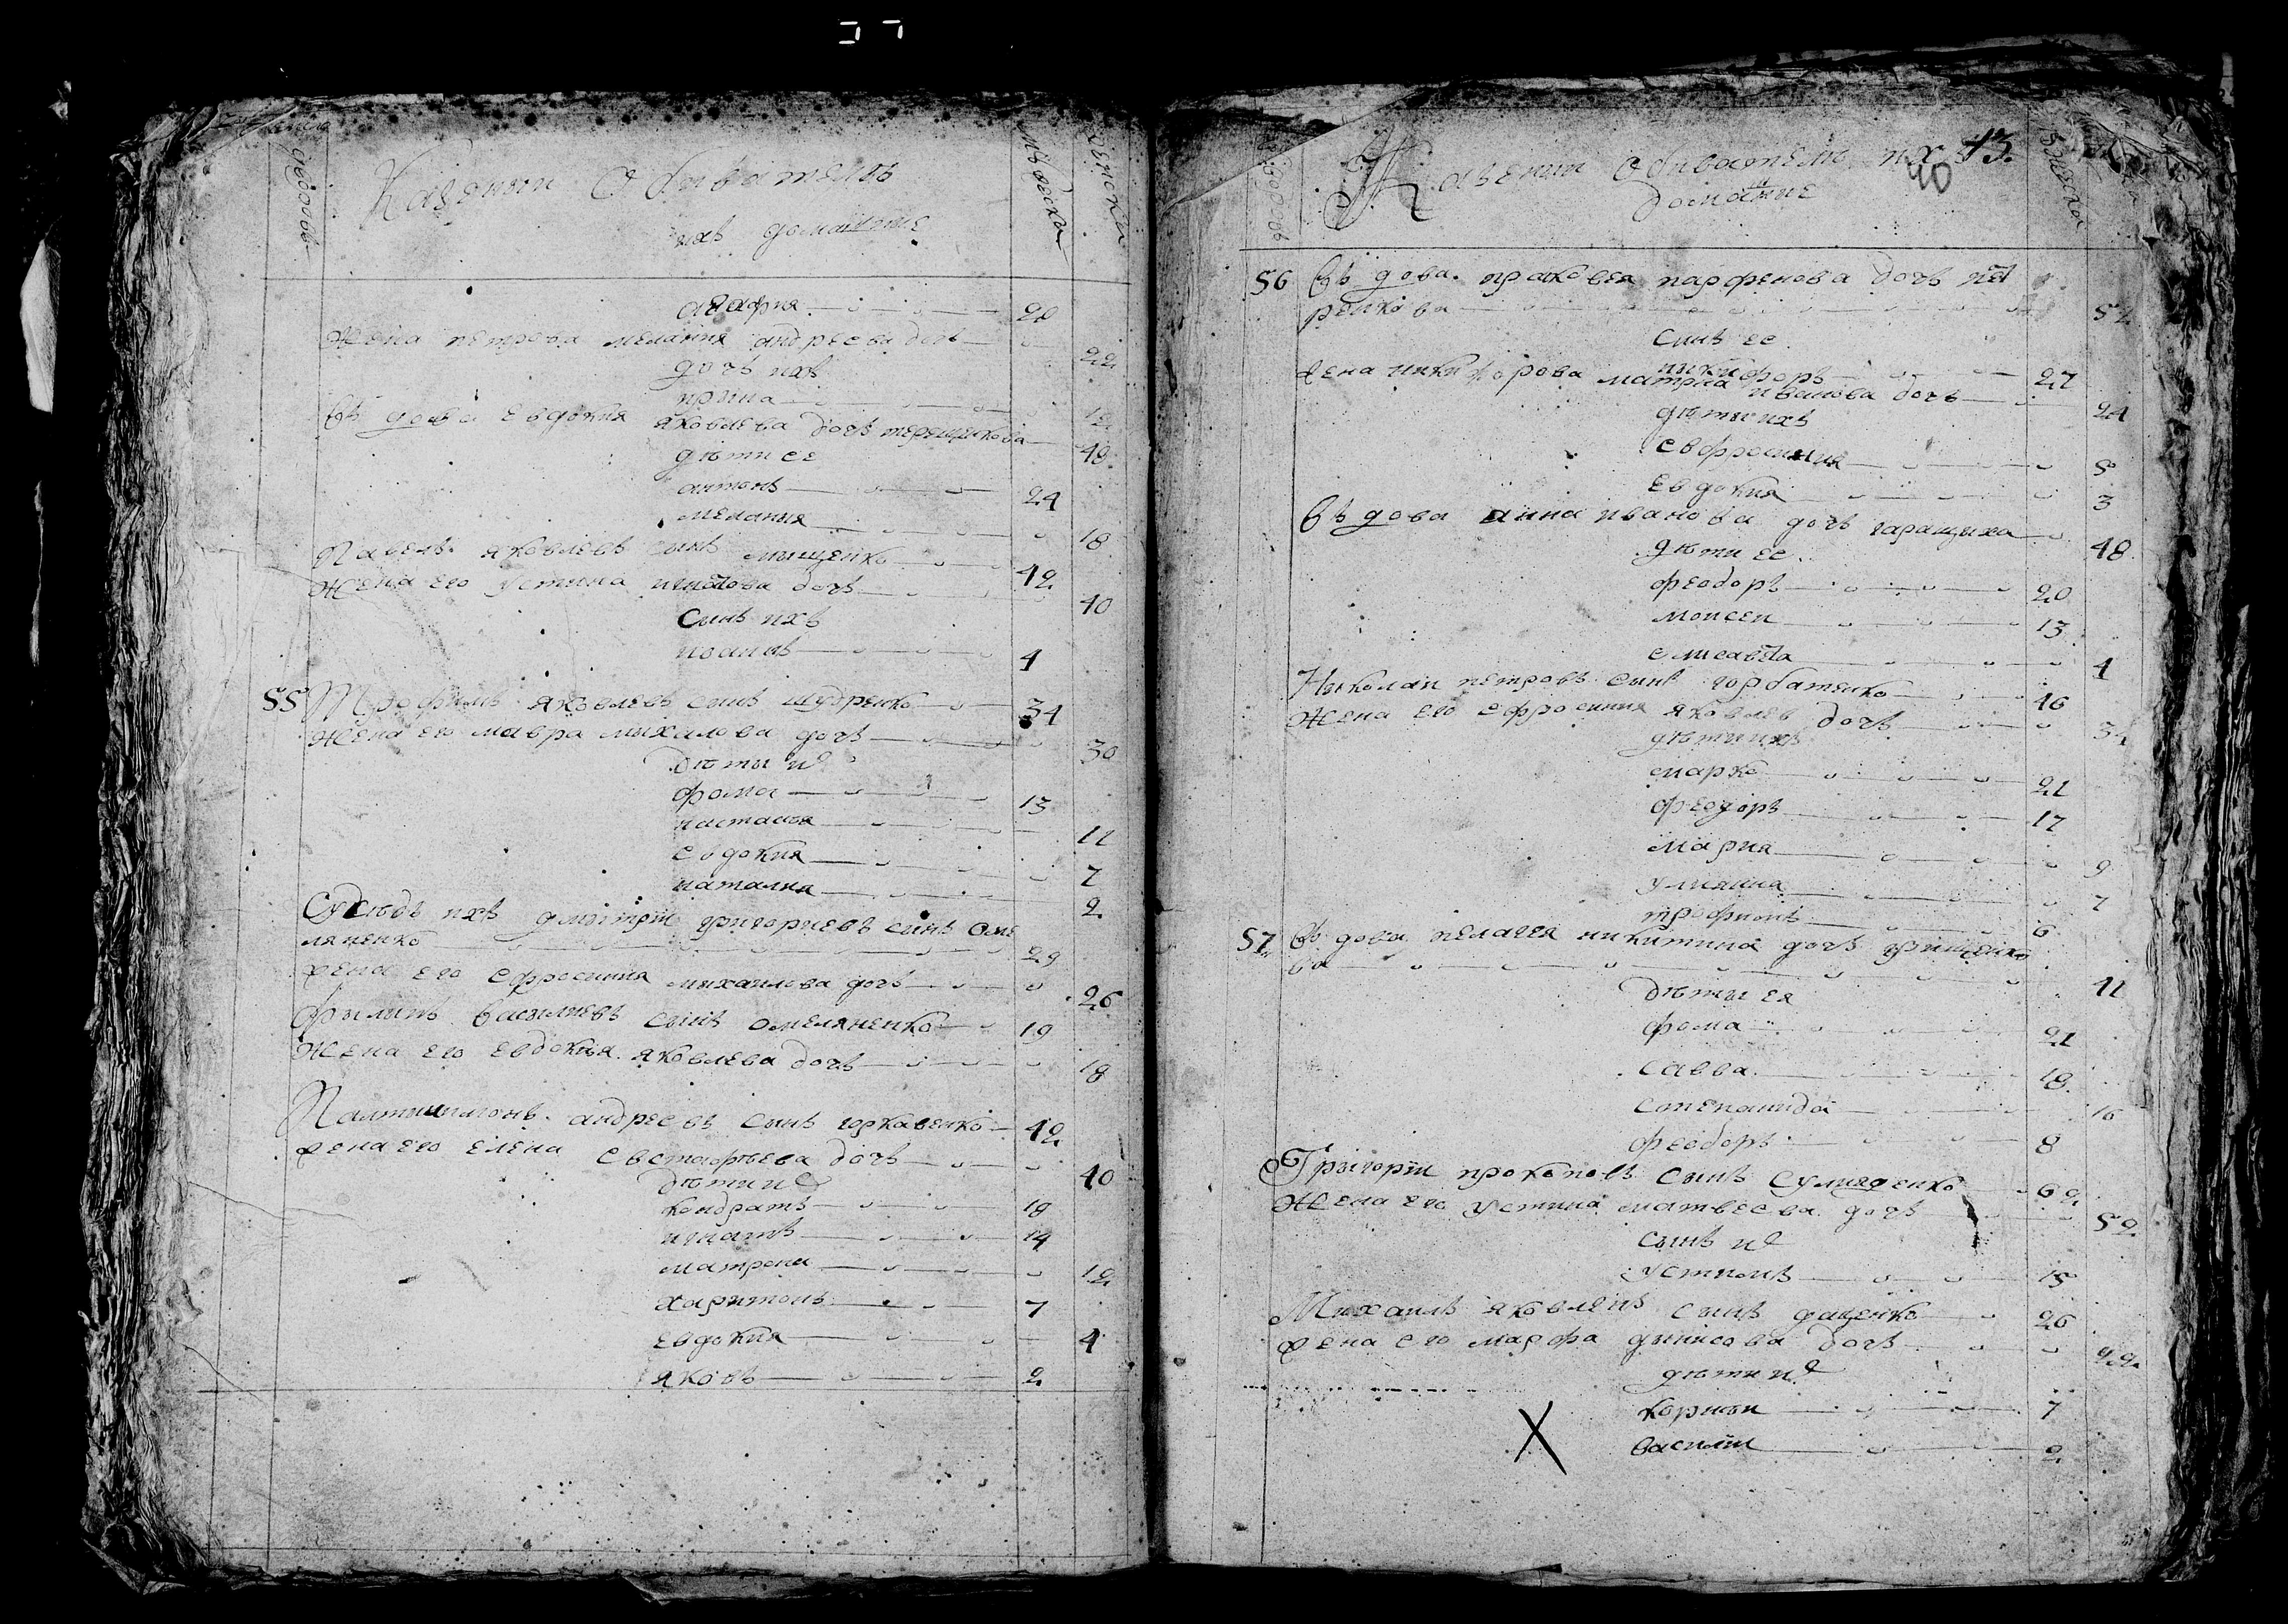 дворовъ
Казении Обивателе
ихъ домашние
мужеска
женска
агафия 20
Жена петрова мелания андреева дочь 22
дочь ихъ
ирина 12
въдова евдокия яковлева дочь терещенкова 48
дети ее
антонъ 24
мелания 18
Павелъ яковлевъ синъ мищенко 42
Жена его устина игнатова дочь 40
Синъ ихъ
иоанъ 4
55 Трофимъ яковлевъ синъ шудренко 34
жена его мавра михалова дочь 30
дѣты их
фома 13
настасия 11
евдокия 7
наталия 2
Сусѣдъ ихъ дмитрій григориевъ синъ оме
ляненко 29
жена его ефросиния михаилова дочь 26
филипъ василиевъ синъ омеляненко 19
Жена его евдокия яковлева дочь 18
Палтилимонъ андреевъ синъ горкавенко 42
жена его елена евстафьева дочь 40
дѣти их
кондратъ 19
игнатъ 14
матрона 12
харитонъ 7
евдокия 4
яковъ 2
дворовъ
Казении Обивателе их 43.
40
домашние
мужеска
56 въдова праковея парфенова дочь пет
ренкова 52
синъ ее
никифоръ 27
жена никифорова матрна иванова дочь 24
дѣти ихъ
евфросиния 5
евдокия 3
въдова анна иванова дочь гаращиха 48
дѣти ее
феодоръ 20
моисеи 13
елисавета 4
Николаи петровъ синъ горбатенко 46
Жена его ефросиния яковлев дочь 34
дѣти ихъ
марко 21
феодоръ 17
мария 9
улияна 7
трофимъ 6
57 въдова пелагея никитина дочь грищенко
ва 41
дѣты ея
фома 21
савва 18
степанида 16
феодоръ 8
Григорій прокоповъ синъ сулияденко 62
Жена его устина матвеева дочь 52
синъ их
устимъ 15
Михаилъ яковлевъ синъ даценко 26
жена его марфа динисова дочь 22
дѣти их
корнеи 7
василіи 2